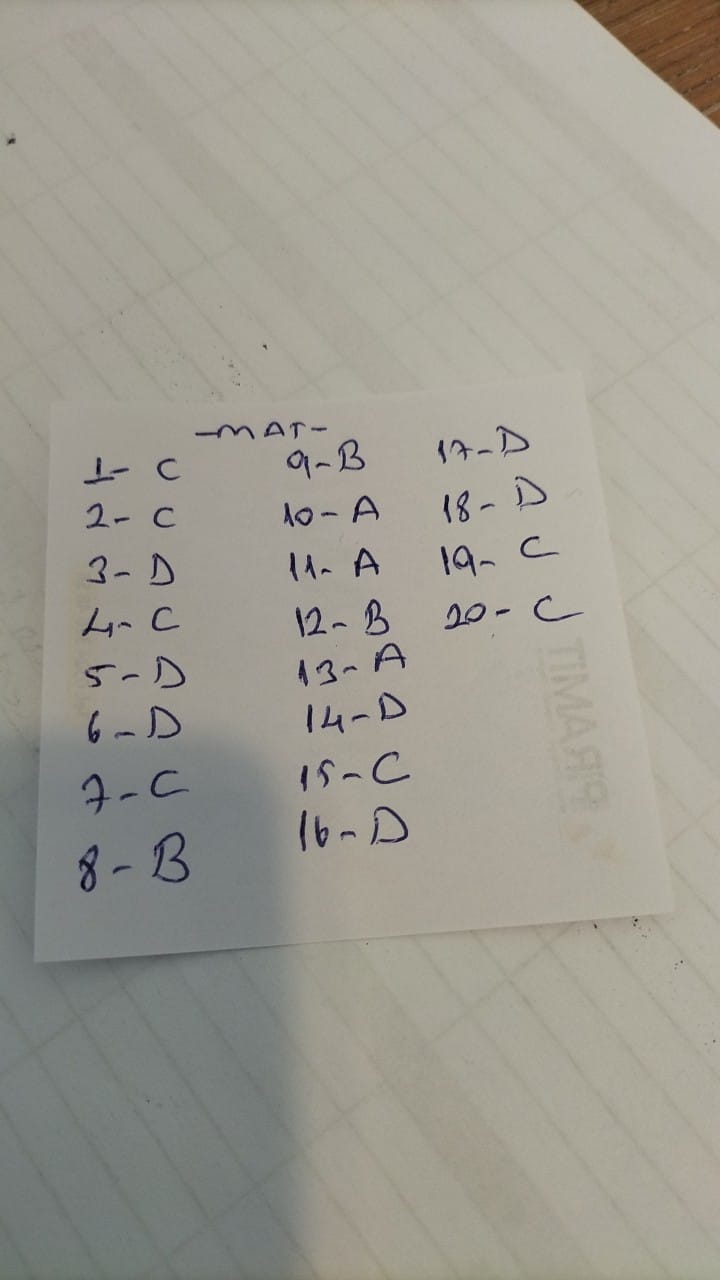 -MAT-
1- C
2- C
3- D
4- C
5- D
6- D
7- C
8- B
9- B
10- A
11- A
12- B
13- A
14- D
15- C
16- D
17- D
18- D
19- C
20- C
PİRAMİT